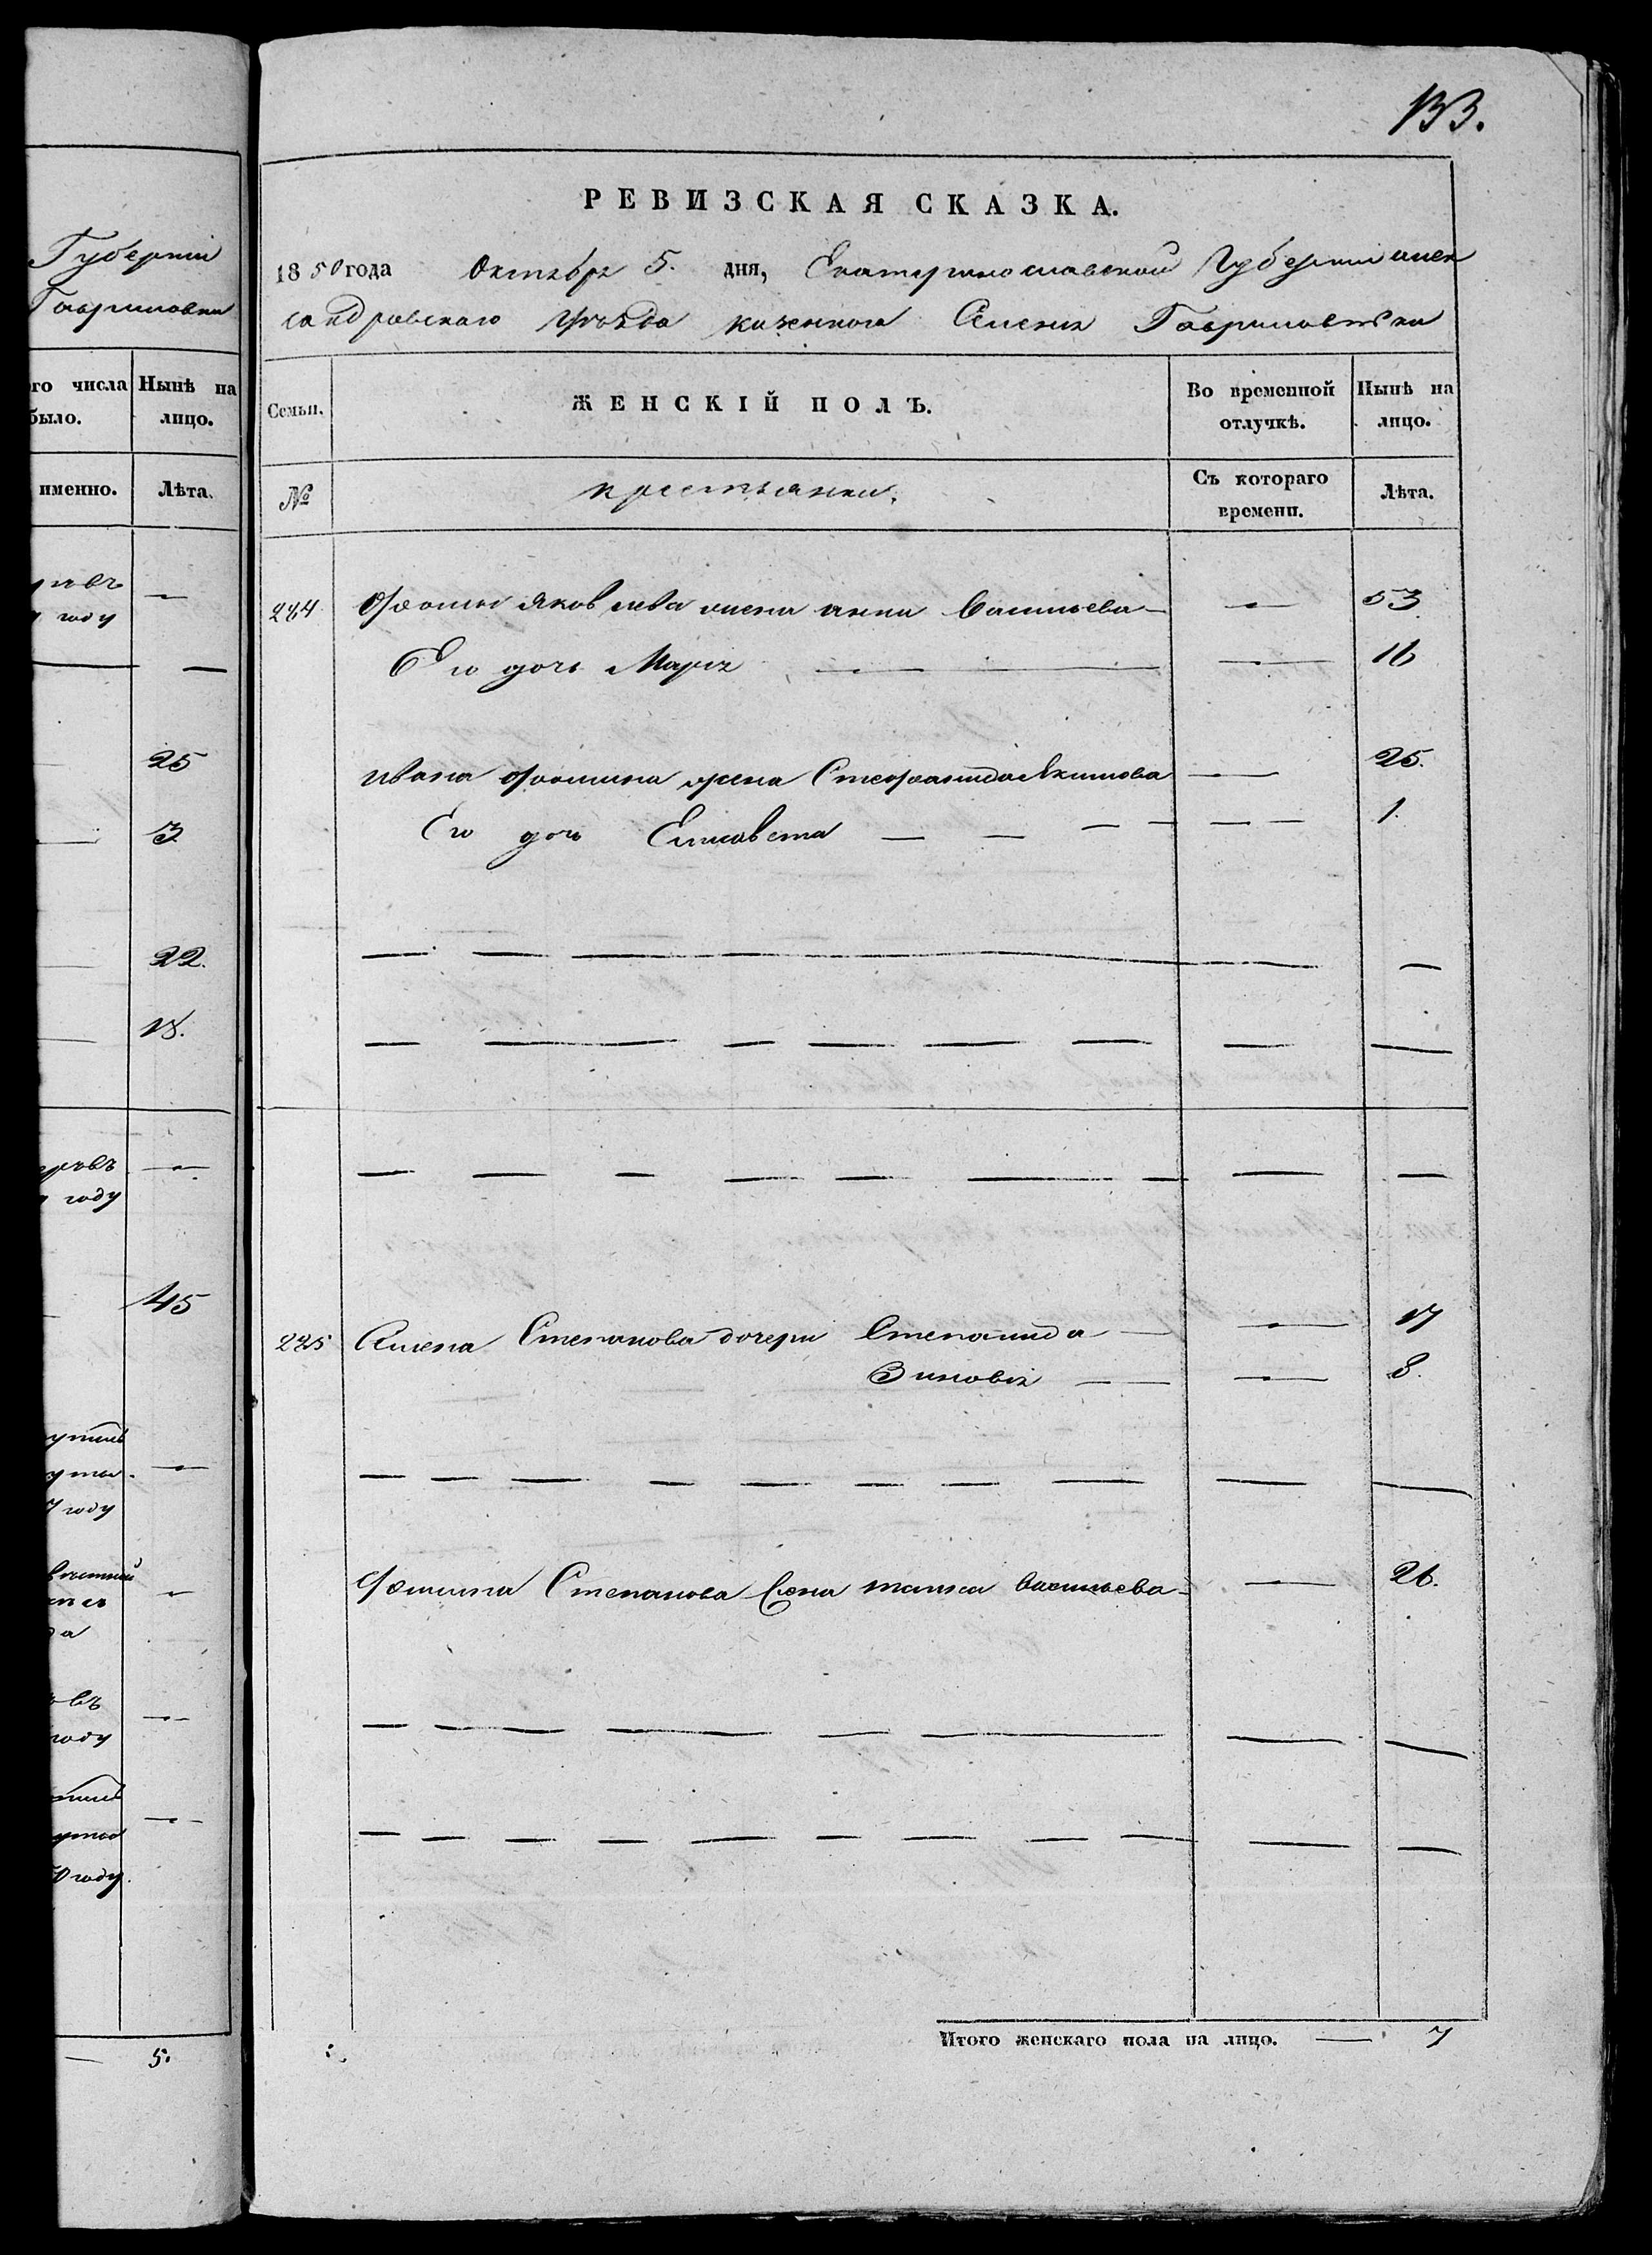 Губерніи
Гавриловки
го числа
было.
Нынѣ на
лицо.
именно.
Лѣта.
году
—
25
3
22.
18.
году
45
7 году
году
0 году.
5.
133.
РЕВИЗСКАЯ СКАЗКА.
1850 года Октября 5. дня, Екатеринославской Губерніи алек
сандровскаго уѣзда казеннога Селенія Гавриловки
Семьи.
ЖЕНСКІЙ ПОЛЪ.
Во временной
отлучкѣ.
Нынѣ на
лицо.
№
крестьянки.
Съ котораго
времени.
Лѣта.
224 Фомы Яковлева жена анна Васильева — — 53
Его дочь Марія — — — 16
Ивана Фомина жена Стефанида Якимова — 25.
Его дочь Елисавета — — — — — — 1.
225 Семена Степанова дочери Степанида — — 17
Зиновія — — — 8.
Степанова жена Васильева — — 26.
Итого женскаго пола на лицо. — 7